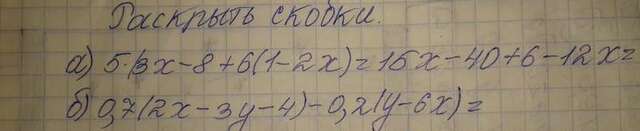 Раскрыть скобки.
а) 5·(3x-8+6(1-2x)=15x-40+6-12x=
б) 0,7(2x-3y-4)-0,2(y-6x)=